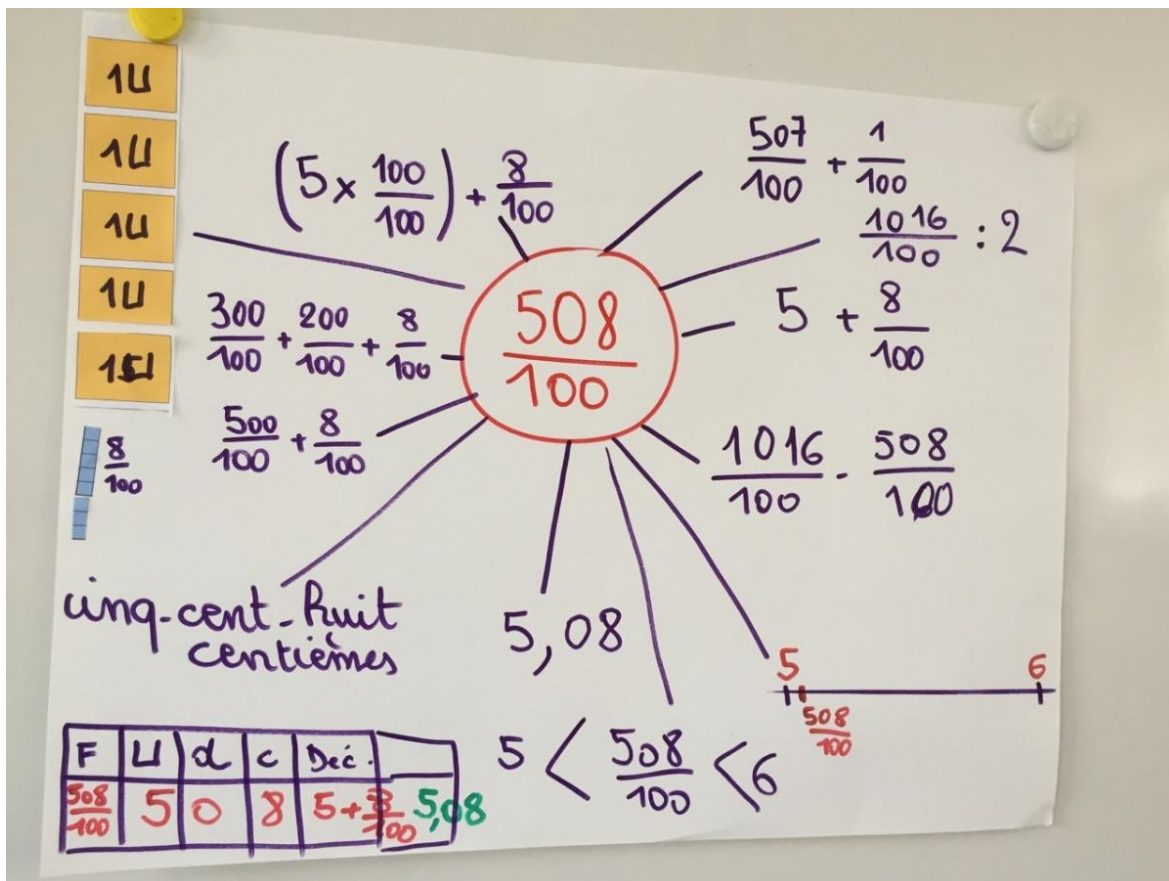 1U
1U
1U
1U
1U
8/100
(5 × 100/100) + 8/100
507/100 + 1/100
1016/100 : 2
5 + 8/100
508/100
300/100 + 200/100 + 8/100
500/100 + 8/100
1016/100 - 508/100
cinq-cent-huit
centièmes
5,08
5 6
508/100
5 < 508/100 < 6
F U d c Déc.
508/100 5 0 8 5+8/100 5,08